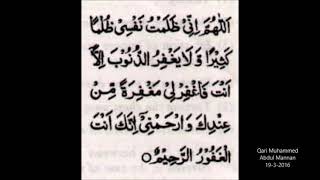 اَللّٰهُمَّ اِنِّیْ ظَلَمْتُ نَفْسِیْ ظُلْمًا
كَثِیْرًا وَّلَا یَغْفِرُ الذُّنُوْبَ اِلَّا
اَنْتَ فَاغْفِرْلِیْ مَغْفِرَةً مِّنْ
عِنْدِكَ وَارْحَمْنِیْ اِنَّكَ اَنْتَ
الْغَفُوْرُ الرَّحِیْمُ ○
Qari Muhammed
Abdul Mannan
19-3-2016